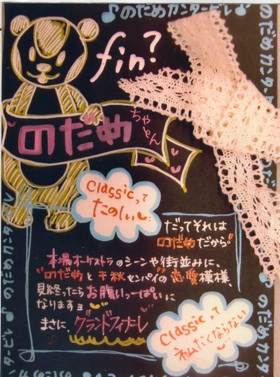 ♪のだめカンタービレ♪
fin?
"のだめ"
ちゃん
Classicって
たのしい〜
だってそれは
のだめだから!
本場オーケストラのシーンや街並みに、
"のだめ"と千秋センパイの恋愛模様、
見終ったらお腹いっぱーいに
なりますョ
まさに、グランドフィナーレ
Classicって
ねむたくならない